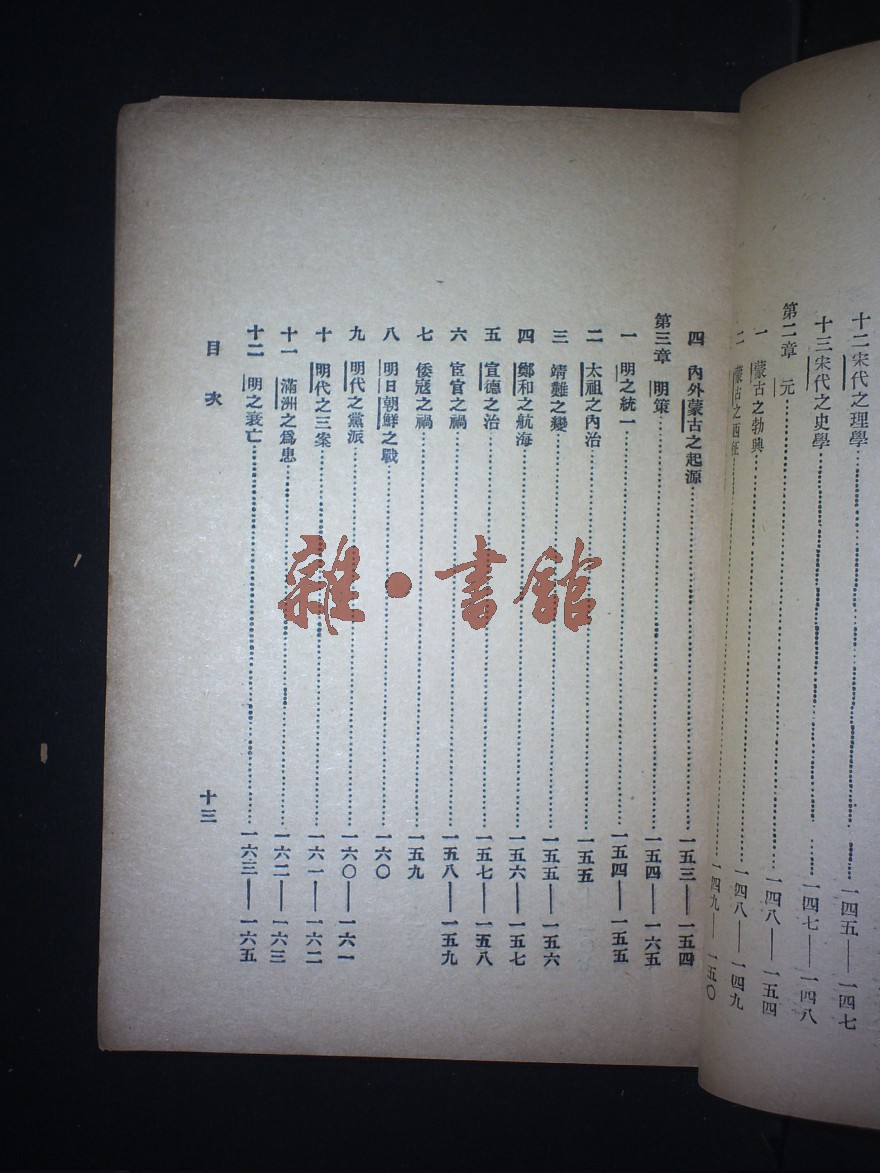 十二 宋代之理學……一四五——一四七
十三 宋代之史學……一四七——一四八
第二章 元……一四八——一五四
一 蒙古之勃興……一四八——一四九
二 蒙古之西征……一四九——一五〇
四 內外蒙古之起源……一五三——一五四
第三章 明策……一五四——一六五
一 明之統一……一五四——一五五
二 太祖之內治……一五五
三 靖難之變……一五五——一五六
四 鄭和之航海……一五六——一五七
五 宣德之治……一五七——一五八
六 宦官之禍……一五八——一五九
七 倭寇之禍……一五九
八 明日朝鮮之戰……一六〇
九 明代之黨派……一六〇——一六一
十 明代之三案……一六一——一六二
十一 滿洲之爲患……一六二——一六三
十二 明之衰亡……一六三——一六五
目次
十三
雜·書館